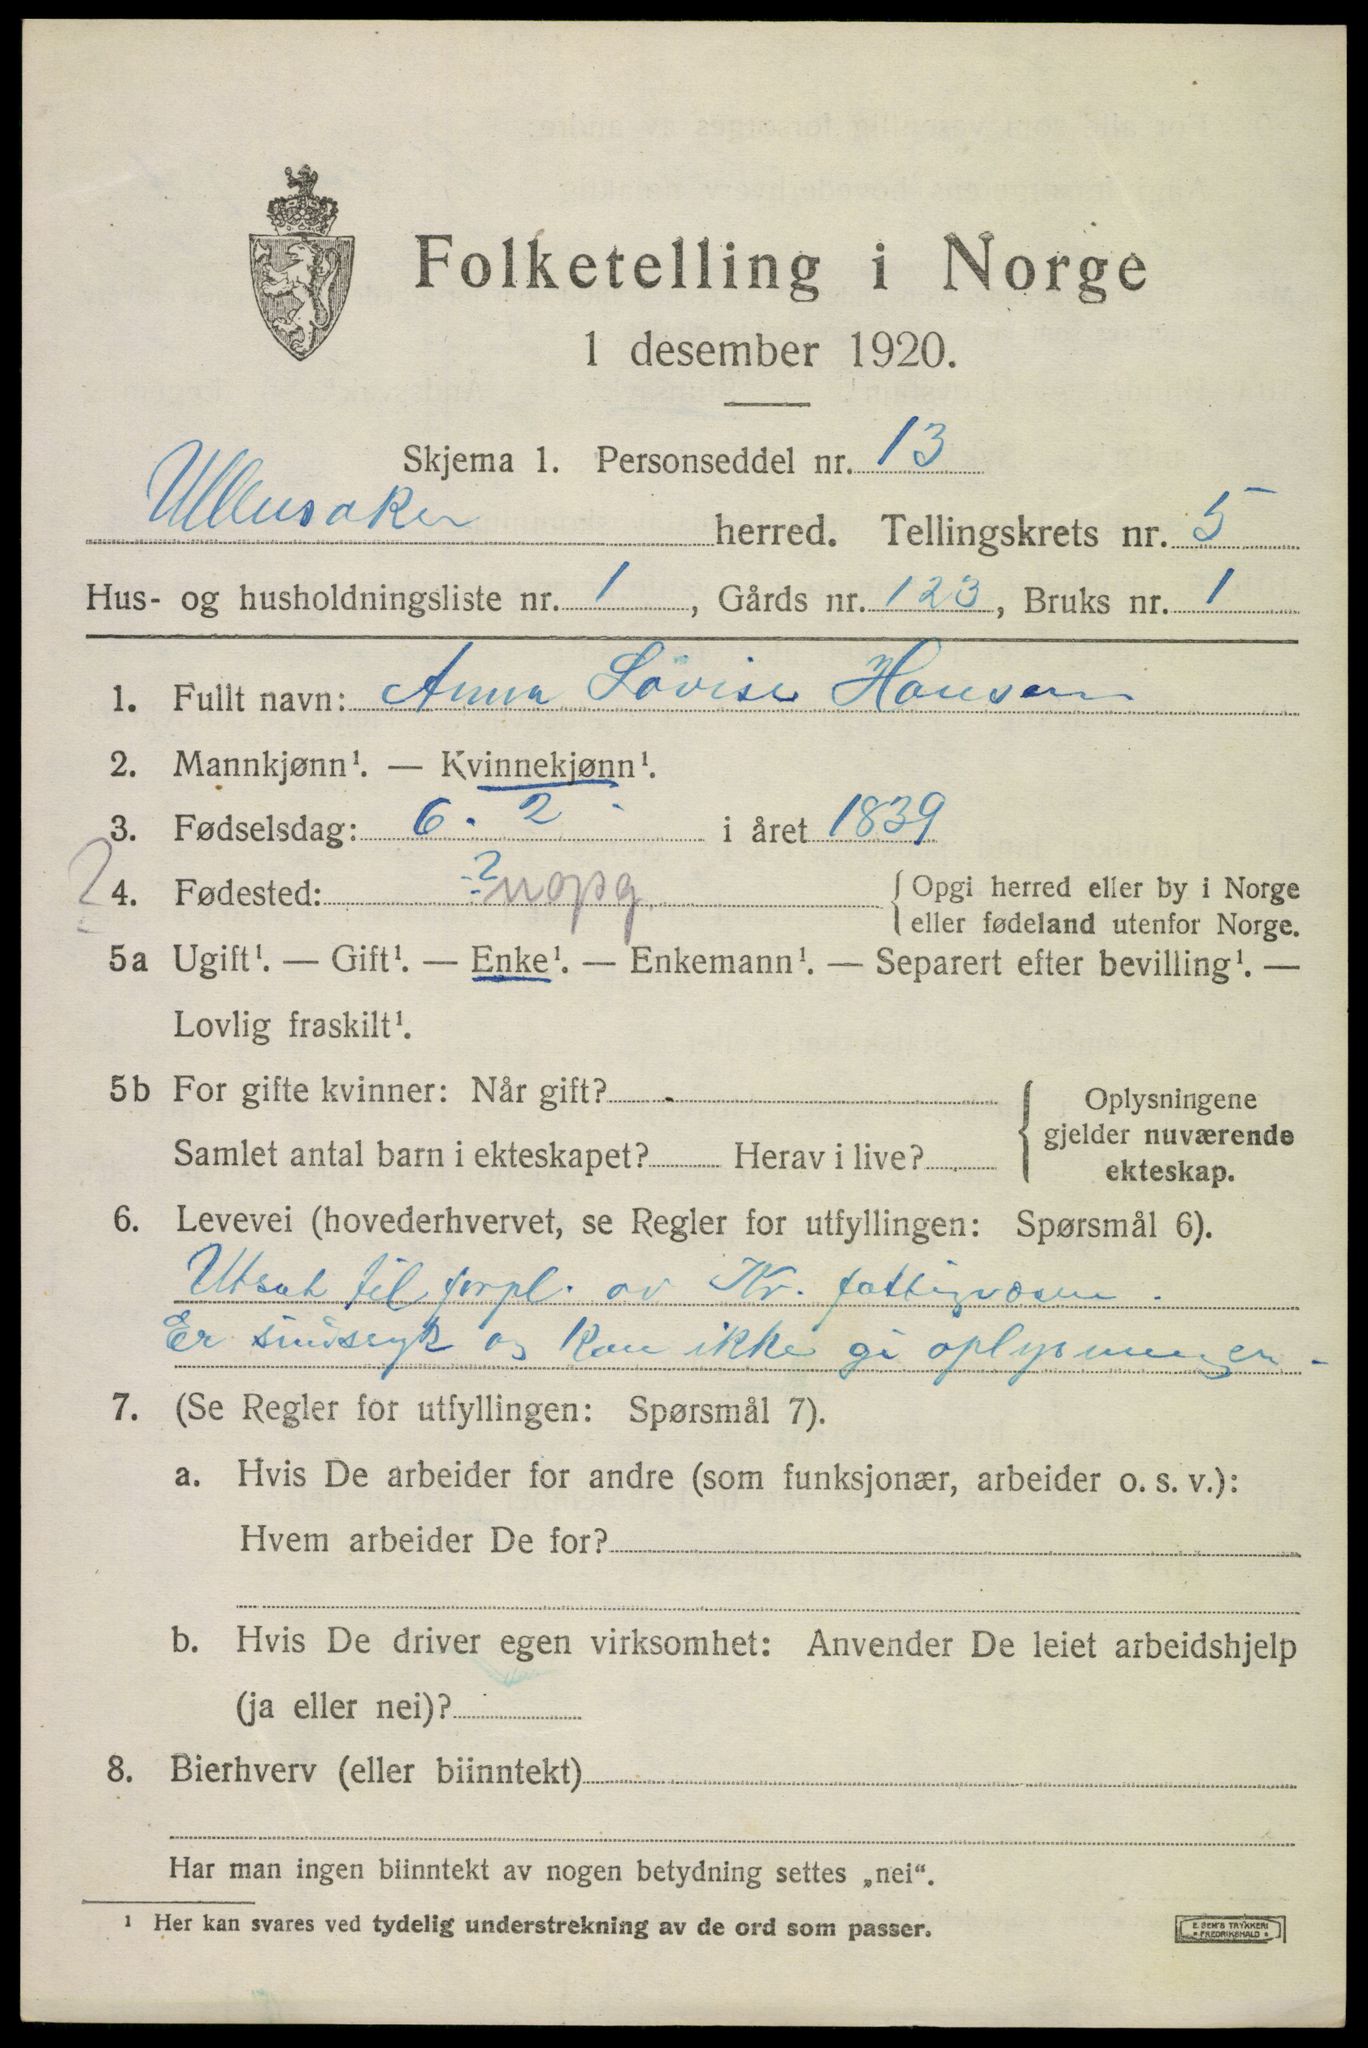 Folketelling i Norge
1 desember 1920.
Skjema 1. Personseddel nr. 13
Ullensaker herred. Tellingskrets nr. 5
Hus- og husholdningsliste nr. 1, Gårds nr. 123, Bruks nr. 1
1. Fullt navn: Anna Lovise Hansen
2. Mannkjønn¹. — Kvinnekjønn¹.
3. Fødselsdag: 6. 2 i året 1839
? 4. Fødested: ? uopg. { Opgi herred eller by i Norge
eller fødeland utenfor Norge.
5a Ugift¹. — Gift¹. — Enke¹. — Enkemann¹. — Separert efter bevilling¹. —
Lovlig fraskilt¹.
5b For gifte kvinner: Når gift?
Samlet antal barn i ekteskapet? Herav i live?
{ Oplysningene
gjelder nuværende
ekteskap.
6. Levevei (hovederhvervet, se Regler for utfyllingen: Spørsmål 6).
Utsat til forpl. av Kr. fattigvæsen.
Er sindssyk og kan ikke gi oplysninger.
7. (Se Regler for utfyllingen: Spørsmål 7).
a. Hvis De arbeider for andre (som funksjonær, arbeider o. s. v.):
Hvem arbeider De for?
b. Hvis De driver egen virksomhet: Anvender De leiet arbeidshjelp
(ja eller nei)?
8. Bierhverv (eller biinntekt)
Har man ingen biinntekt av nogen betydning settes „nei“.
¹ Her kan svares ved tydelig understrekning av de ord som passer.
E. SEM'S TRYKKERI
FREDRIKSHALD